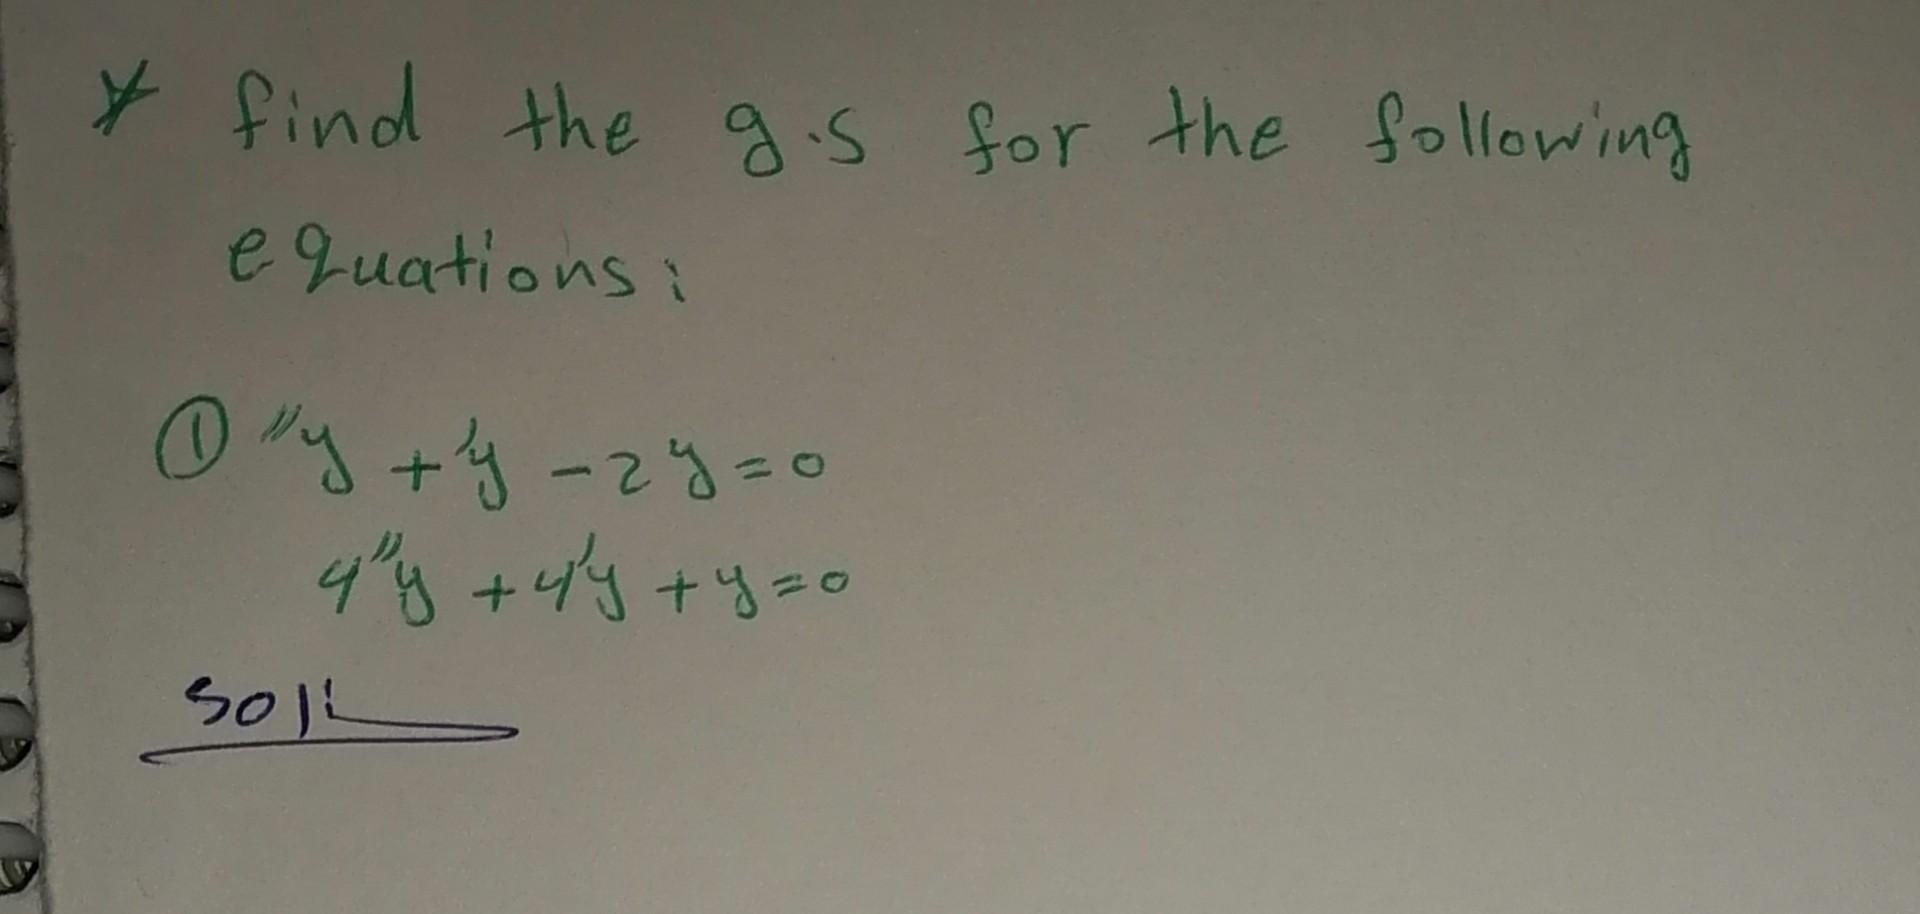 * find the g.s for the following
equations:
① "y + 'y - 2y = 0
4"y + 4'y + y = 0
Sol: